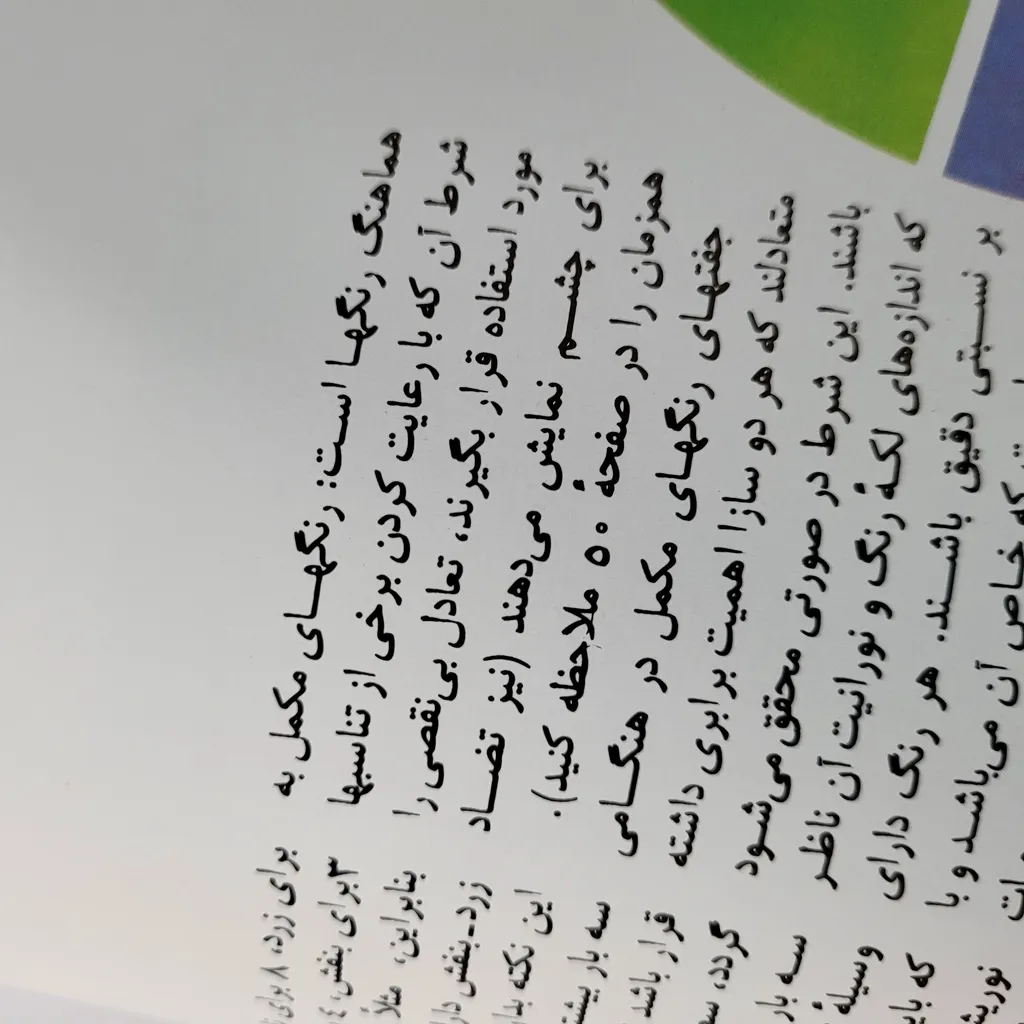 هماهنگ رنگها است: رنگهای مکمل به
شرط آن که با رعایت کردن برخی از تناسبها
مورد استفاده قرار بگیرند، تعادل بی‌نقصی را
برای چشم نمایش می‌دهند (نیز تضاد
همزمان را در صفحهٔ ۵۰ ملاحظه کنید).
جفتهای رنگهای مکمل در هنگامی
متعادلند که هر دو سازا اهمیت برابری داشته
باشند. این شرط در صورتی محقق می‌شود
که اندازه‌های لکهٔ رنگ و نورانیت آن ناظر
بر نسبتی دقیق باشند. هر رنگ دارای
که خاص آن می‌باشد و با
برای زرد، ۸ برای
۳ برای بنفش، ۴
بنابراین، مثلاً
زرد-بنفش
این نکته
سه بار
قرار باشد
گردد،
سه بار
وسیلهٔ
که